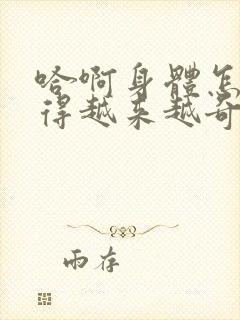 哈啊身體怎
得越来越奇
雨存